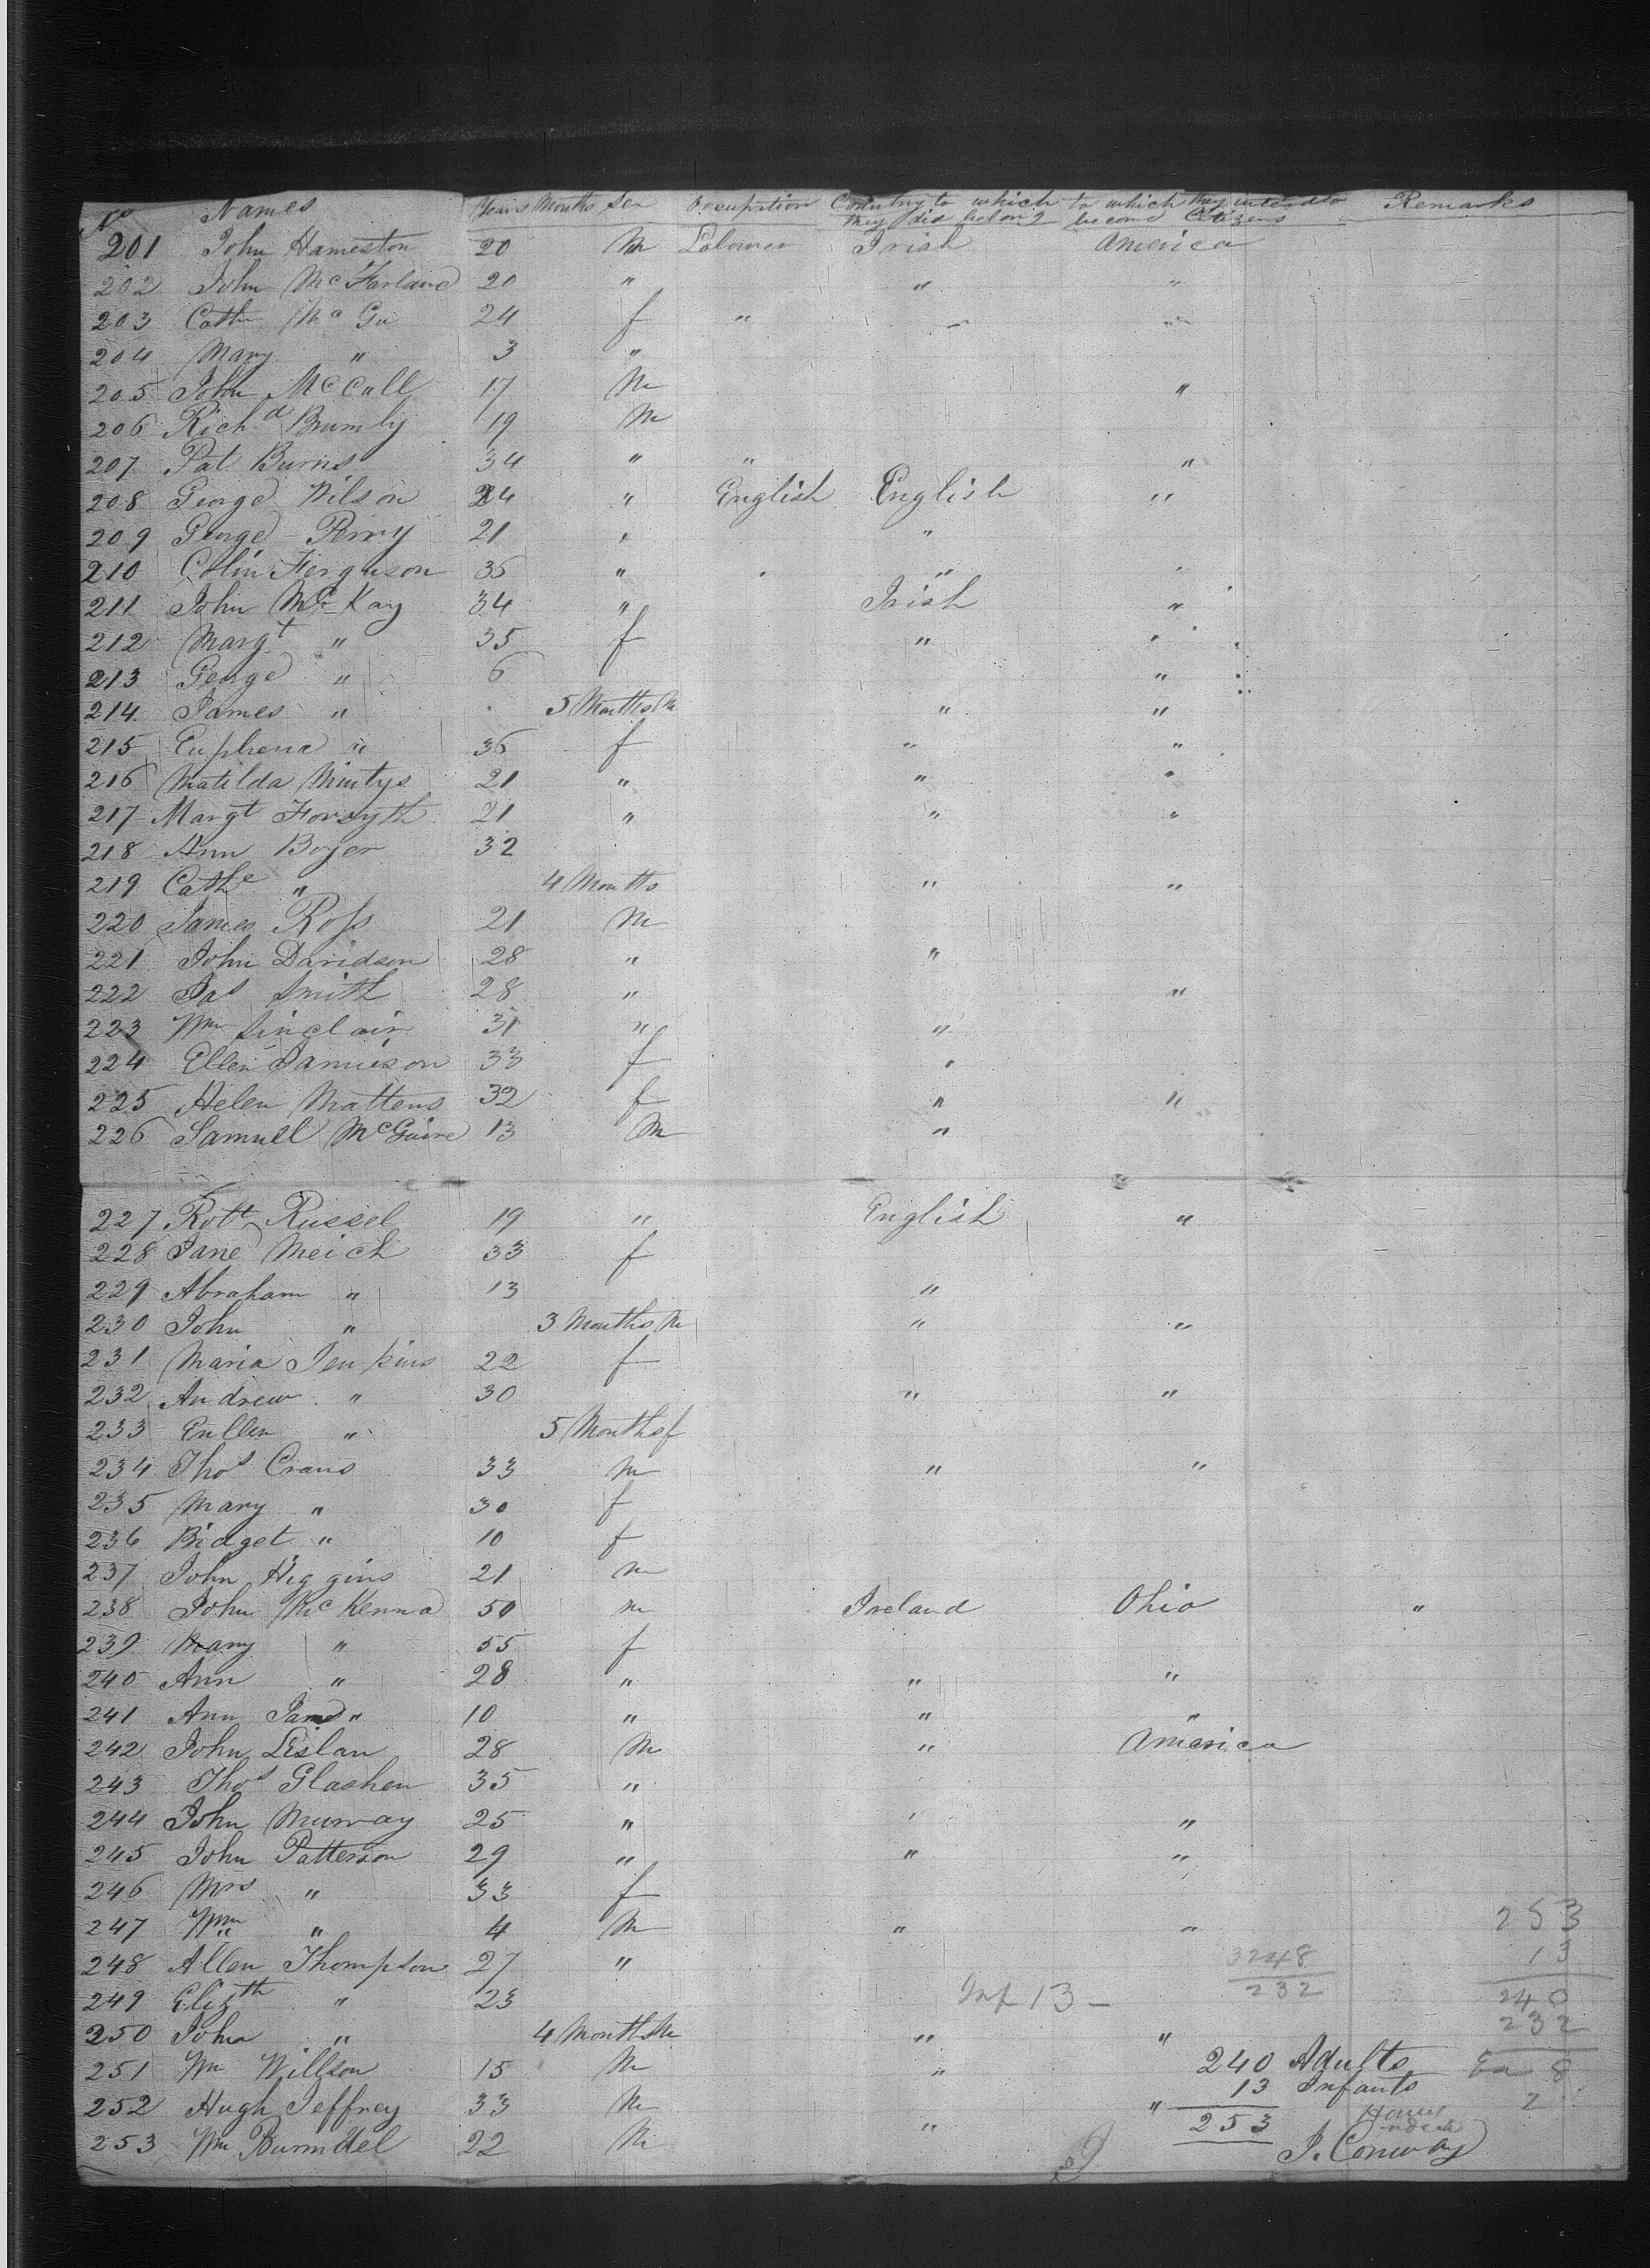 No Names Years Months Sex Occupation Country to which to which they intend to Remarks
they did belong become Citizens
201 John Hameston 20 M Labourer Irish America
202 John McFarland 20 " " "
203 Cath McGu 24 f " " "
204 Mary " 3 "
205 John McCall 17 M "
206 Richd Brumly 19 M
207 Pat Burns 34 " " "
208 George Wilson 24 " English English "
209 George Perry 21 " "
210 Colin Ferguson 36 " " " "
211 John McKay 34 " Irish "
212 Margt " 35 f " "
213 George " 6 "
214 James " 5 Months M " "
215 Euphena " 36 f " "
216 Matilda Mintys 21 " " "
217 Margt Forsyth 21 " " "
218 Ann Boyer 32
219 Cathe " 4 Months " "
220 James Ross 21 M
221 John Davidson 28 " "
222 Jas Smith 28 " "
223 Wm Sinclair 31 " "
224 Ellen Jamieson 33 f "
225 Helen Mattens 32 f " "
226 Samuel McGuire 13 M "
227 Robt Russel 19 " English "
228 Jane Meich 33 f
229 Abraham " 13 "
230 John " 3 Months M " "
231 Maria Jenkins 22 f
232 Andrew " 30 " "
233 Enllen " 5 Months f
234 Thos Crans 33 M " "
235 Mary " 30 f
236 Bidget " 10 f
237 John Higgins 21 m
238 John McKenna 50 m Ireland Ohio "
239 Mary " 55 f
240 Ann " 28 " " "
241 Ann Jane " 10 " " "
242 John Lislan 28 M " America
243 Thos Glashen 35 "
244 John Murray 25 " " "
245 John Patterson 29 " " "
246 Mrs " 33 f
247 Wm " 4 M " " 253
248 Allen Thompson 27 " 3248 13
249 Elizth " 23 Inf 13 - 232 240
250 John " 4 Months M " " 232
251 Wm Willson 15 M " 240 Adults 8
252 Hugh Jeffrey 33 M " 13 Infants 2
253 Wm Burndel 22 M " 253
J. Conway